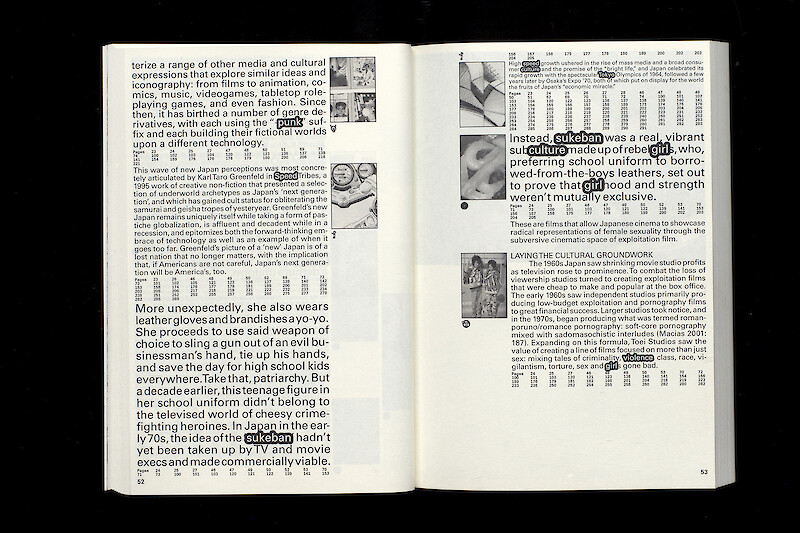 terize a range of other media and cultural
expressions that explore similar ideas and
iconography: from films to animation, co-
mics, music, videogames, tabletop role-
playing games, and even fashion. Since
then, it has birthed a number of genre de-
rivatives, with each using the “-punk” suf-
fix and each building their fictional worlds
upon a different technology.
Pages
This wave of new Japan perceptions was most concre-
tely articulated by Karl Taro Greenfeld in Speed Tribes, a
1995 work of creative non-fiction that presented a selec-
tion of underworld archetypes as Japan's 'next genera-
tion', and which has gained cult status for obliterating the
samurai and geisha tropes of yesteryear. Greenfeld's new
Japan remains uniquely itself while taking a form of pas-
tiche globalization, is affluent and decadent while in a
recession, and epitomizes both the forward-thinking em-
brace of technology as well as an example of when it
goes too far. Greenfeld's picture of a 'new' Japan is of a
lost nation that no longer matters, with the implication
that, if Americans are not careful, Japan's next genera-
tion will be America's, too.
Pages
More unexpectedly, she also wears
leather gloves and brandishes a yo-yo.
She proceeds to use said weapon of
choice to sling a gun out of an evil bu-
sinessman's hand, tie up his hands,
and save the day for high school kids
everywhere. Take that, patriarchy. But
a decade earlier, this teenage figure in
her school uniform didn't belong to
the televised world of cheesy crime-
fighting heroines. In Japan in the ear-
ly 70s, the idea of the sukeban hadn't
yet been taken up by TV and movie
execs and made commercially viable.
Pages
52
High speed growth ushered in the rise of mass media and a broad consu-
mer culture and the promise of the "bright life," and Japan celebrated its
rapid growth with the spectacular Tokyo Olympics of 1964, followed a few
years later by Osaka's Expo '70, both of which put on display for the world
the fruits of Japan's "economic miracle."
Pages
Instead, sukeban was a real, vibrant
subculture made up of rebel girls, who,
preferring school uniform to borro-
wed-from-the-boys leathers, set out
to prove that girlhood and strength
weren't mutually exclusive.
Pages
These are films that allow Japanese cinema to showcase
radical representations of female sexuality through the
subversive cinematic space of exploitation film.
LAYING THE CULTURAL GROUNDWORK
The 1960s Japan saw shrinking movie studio profits
as television rose to prominence. To combat the loss of
viewership studios turned to creating exploitation films
that were cheap to make and popular at the box office.
The early 1960s saw independent studios primarily pro-
ducing low-budget exploitation and pornography films
to great financial success. Larger studios took notice, and
in the 1970s, began producing what was termed roman-
poruno/romance pornography: soft-core pornography
mixed with sadomasochistic interludes (Macias 2001:
187). Expanding on this formula, Toei Studios saw the
value of creating a line of films focused on more than just
sex: mixing tales of criminality, violence class, race, vi-
gilantism, torture, sex and girls gone bad.
Pages
53